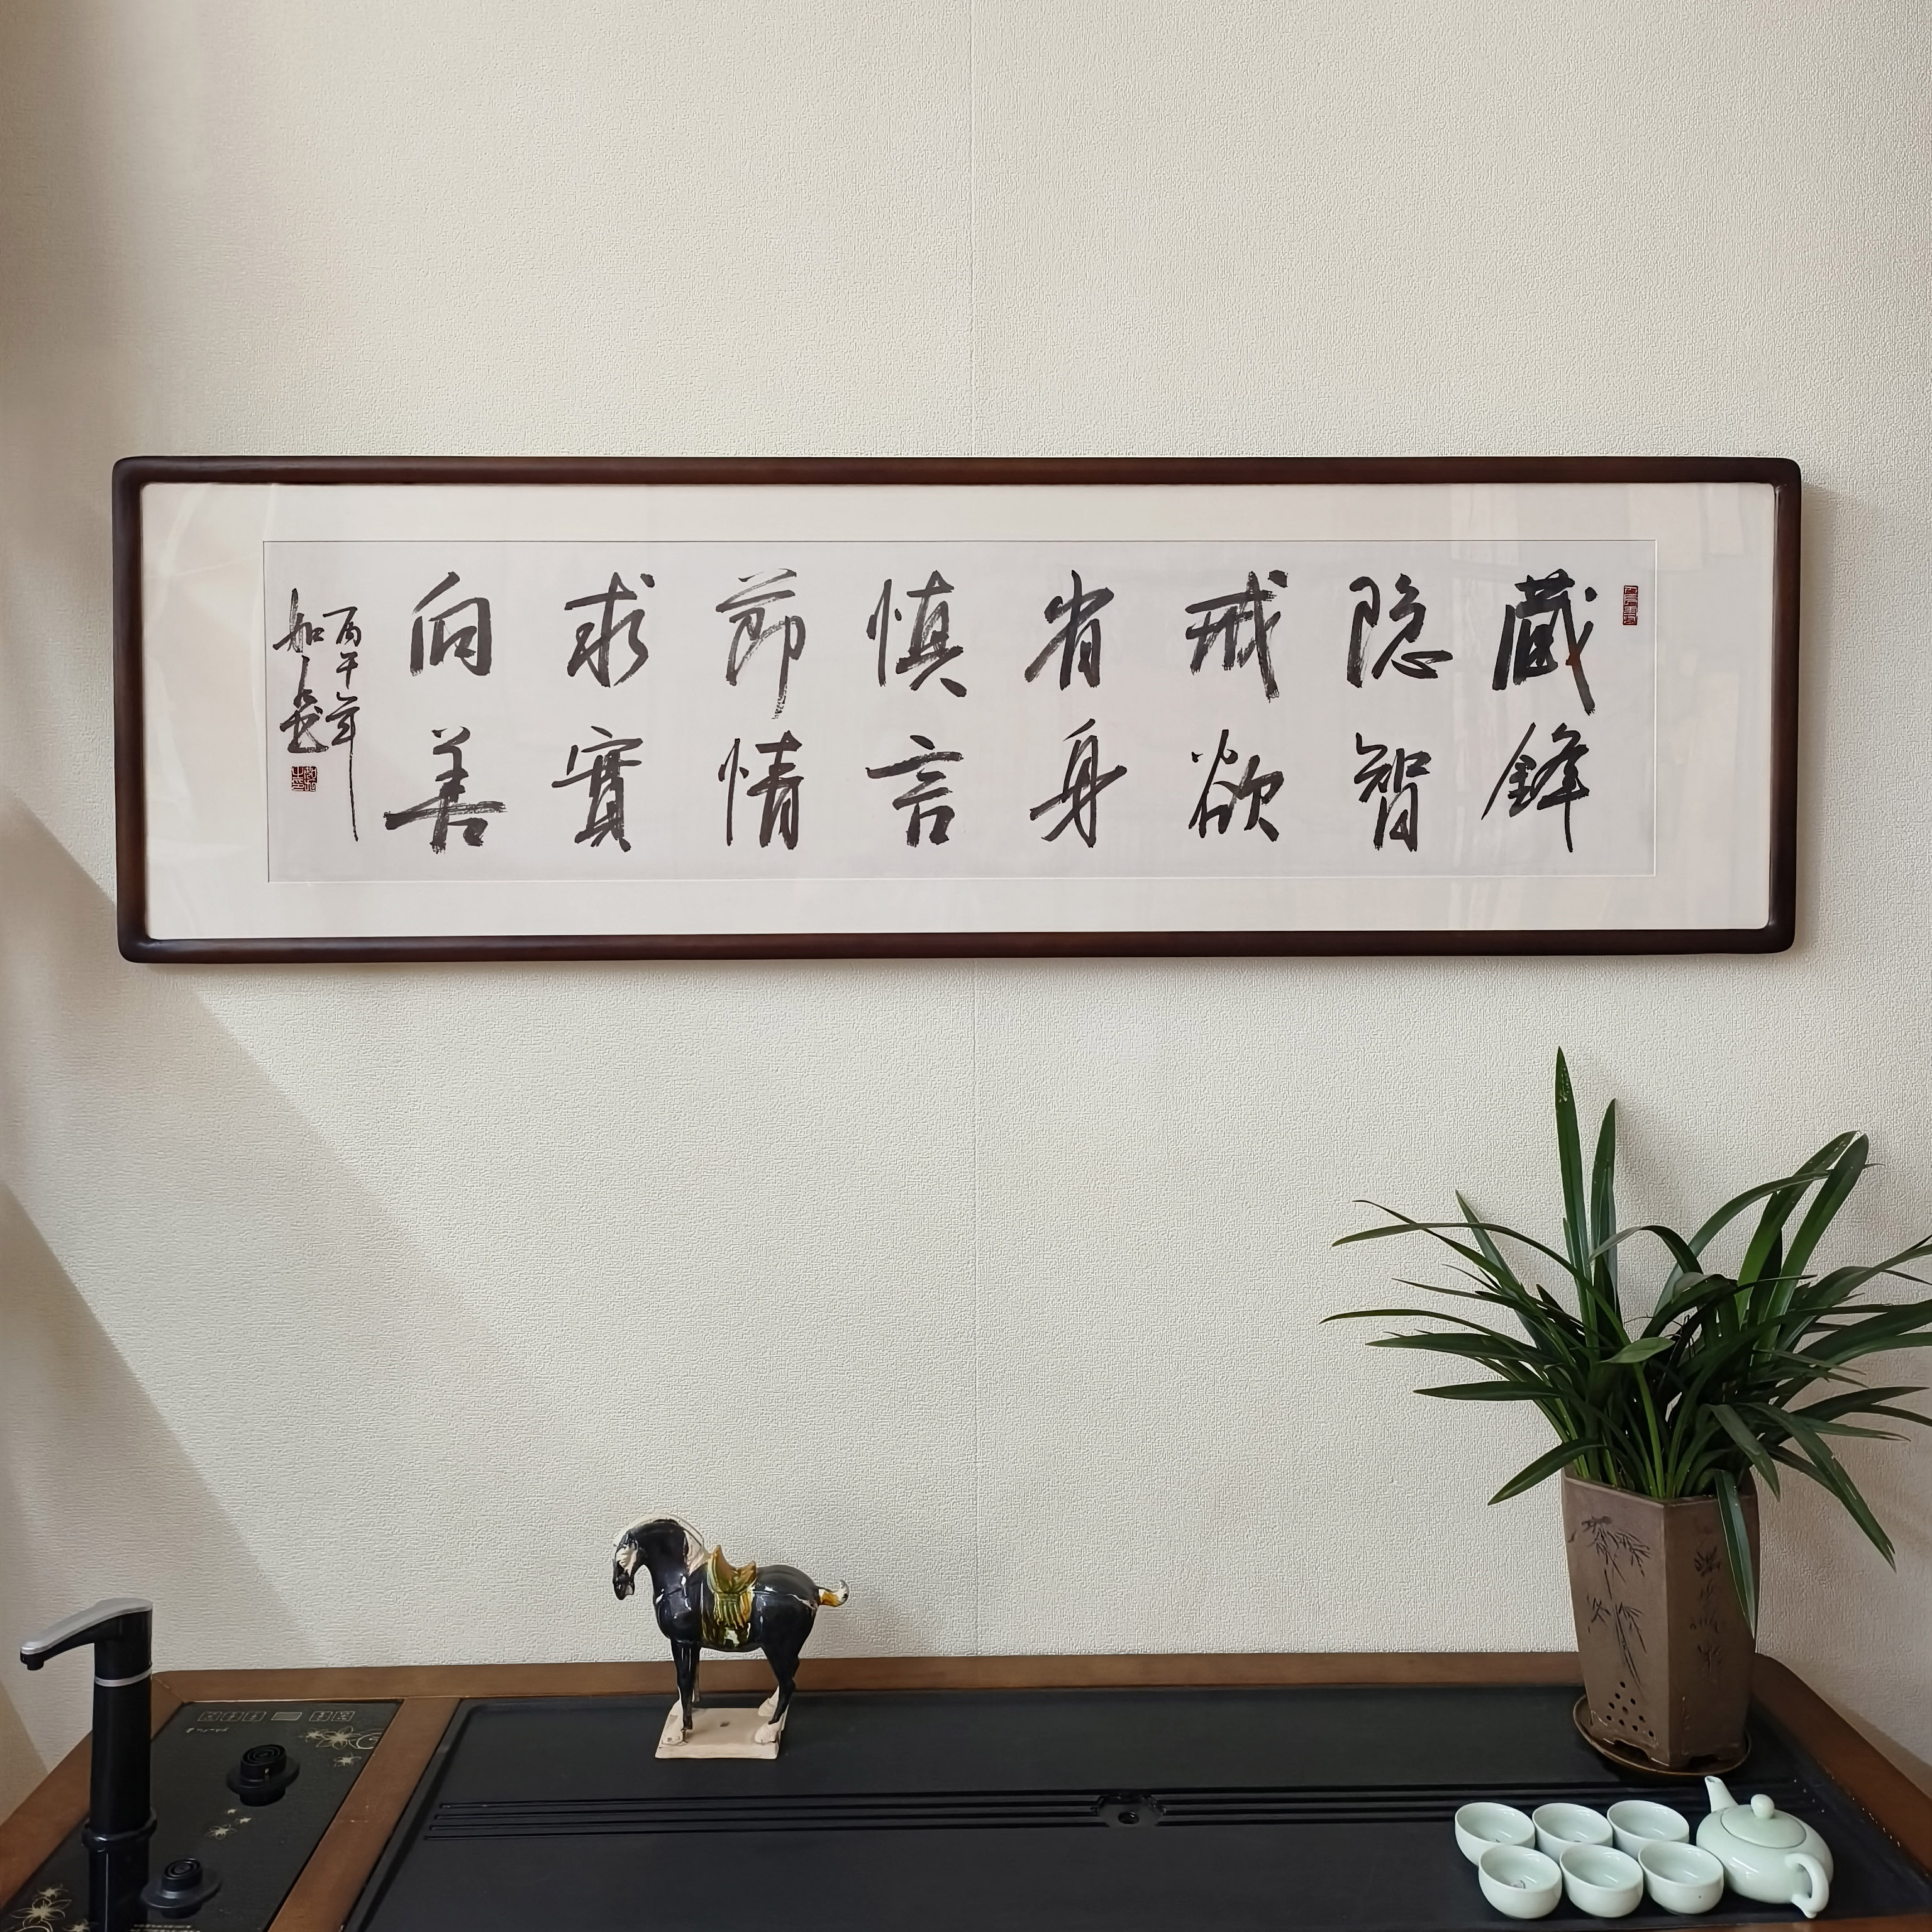 藏鋒
隐智
戒欲
省身
慎言
節情
求實
向善
丙午年